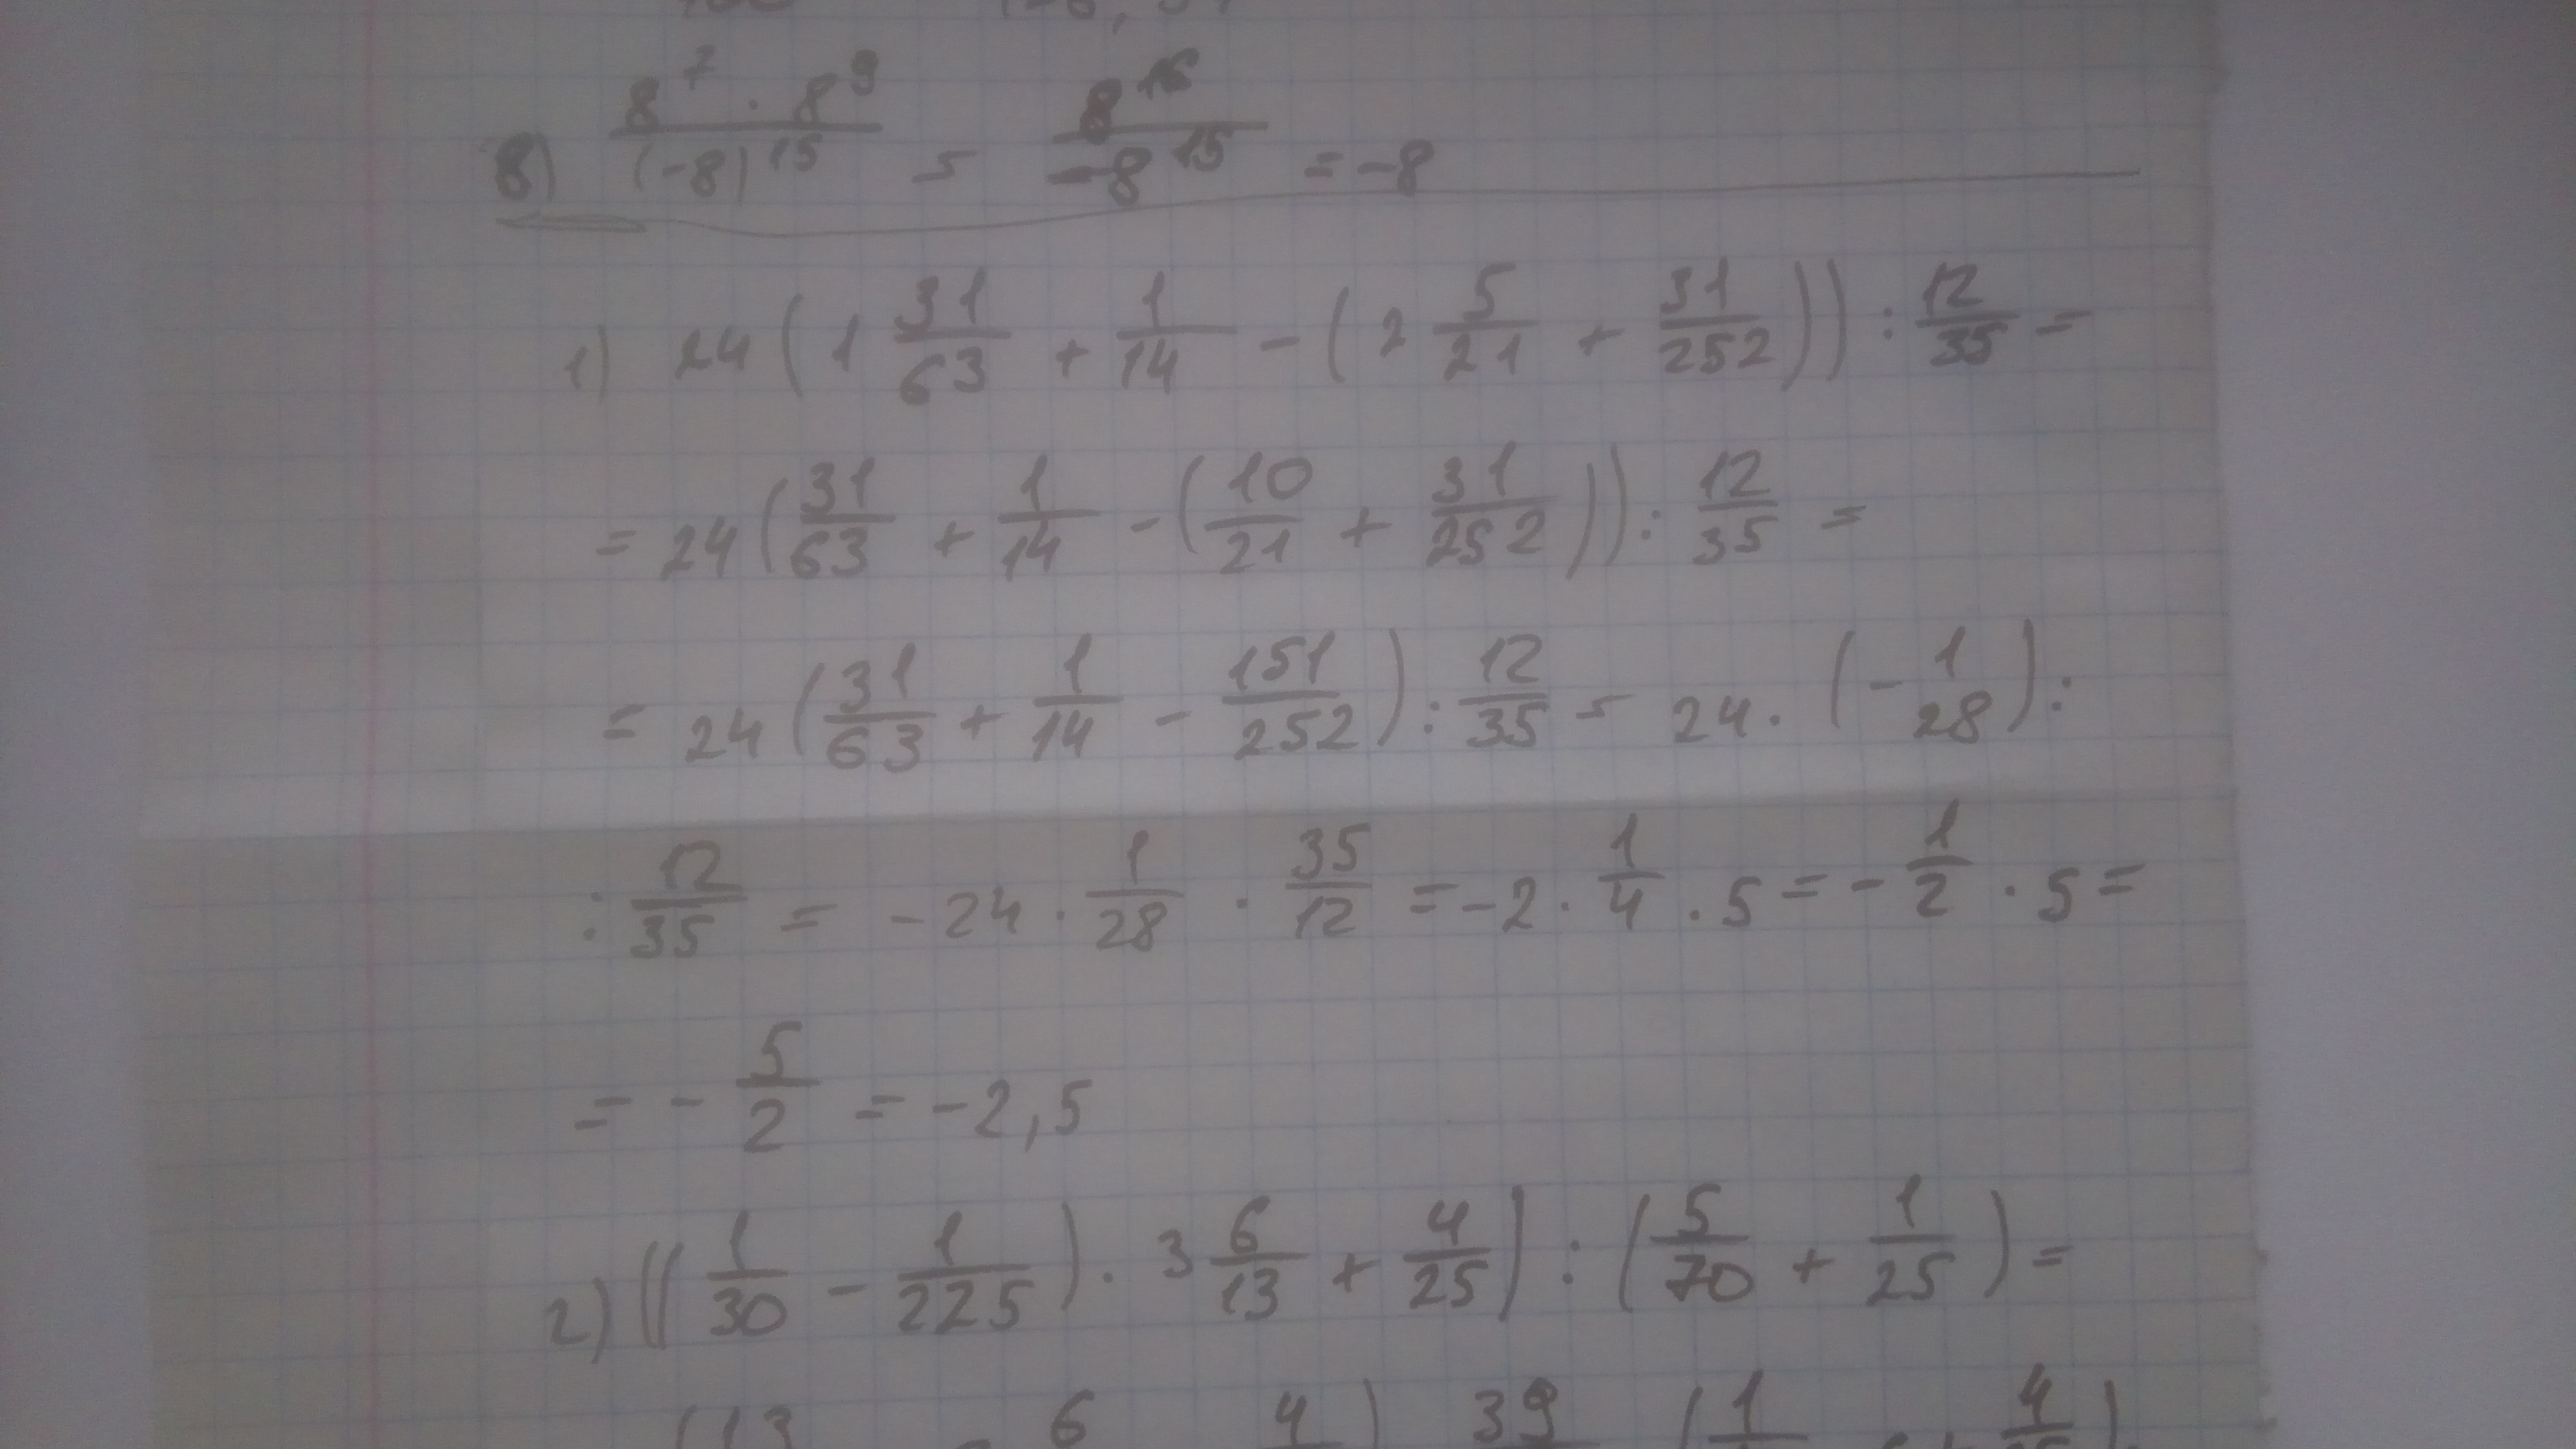 8) \frac{8^7 · 8^9}{(-8)^{15}} = \frac{8^{16}}{-8^{15}} = -8
1) 24 (1 \frac{31}{63} + \frac{1}{14} - (2 \frac{5}{21} + \frac{31}{252})) : \frac{12}{35} =
= 24 (\frac{31}{63} + \frac{1}{14} - (\frac{10}{21} + \frac{31}{252})) : \frac{12}{35} =
= 24 (\frac{31}{63} + \frac{1}{14} - \frac{151}{252}) : \frac{12}{35} = 24 · (-\frac{1}{28}) :
: \frac{12}{35} = -24 · \frac{1}{28} · \frac{35}{12} = -2 · \frac{1}{4} · 5 = -\frac{1}{2} · 5 =
= -\frac{5}{2} = -2,5
2) ((\frac{1}{30} - \frac{1}{225}) · 3 \frac{6}{13} + \frac{4}{25}) : (\frac{5}{70} + \frac{1}{25}) =